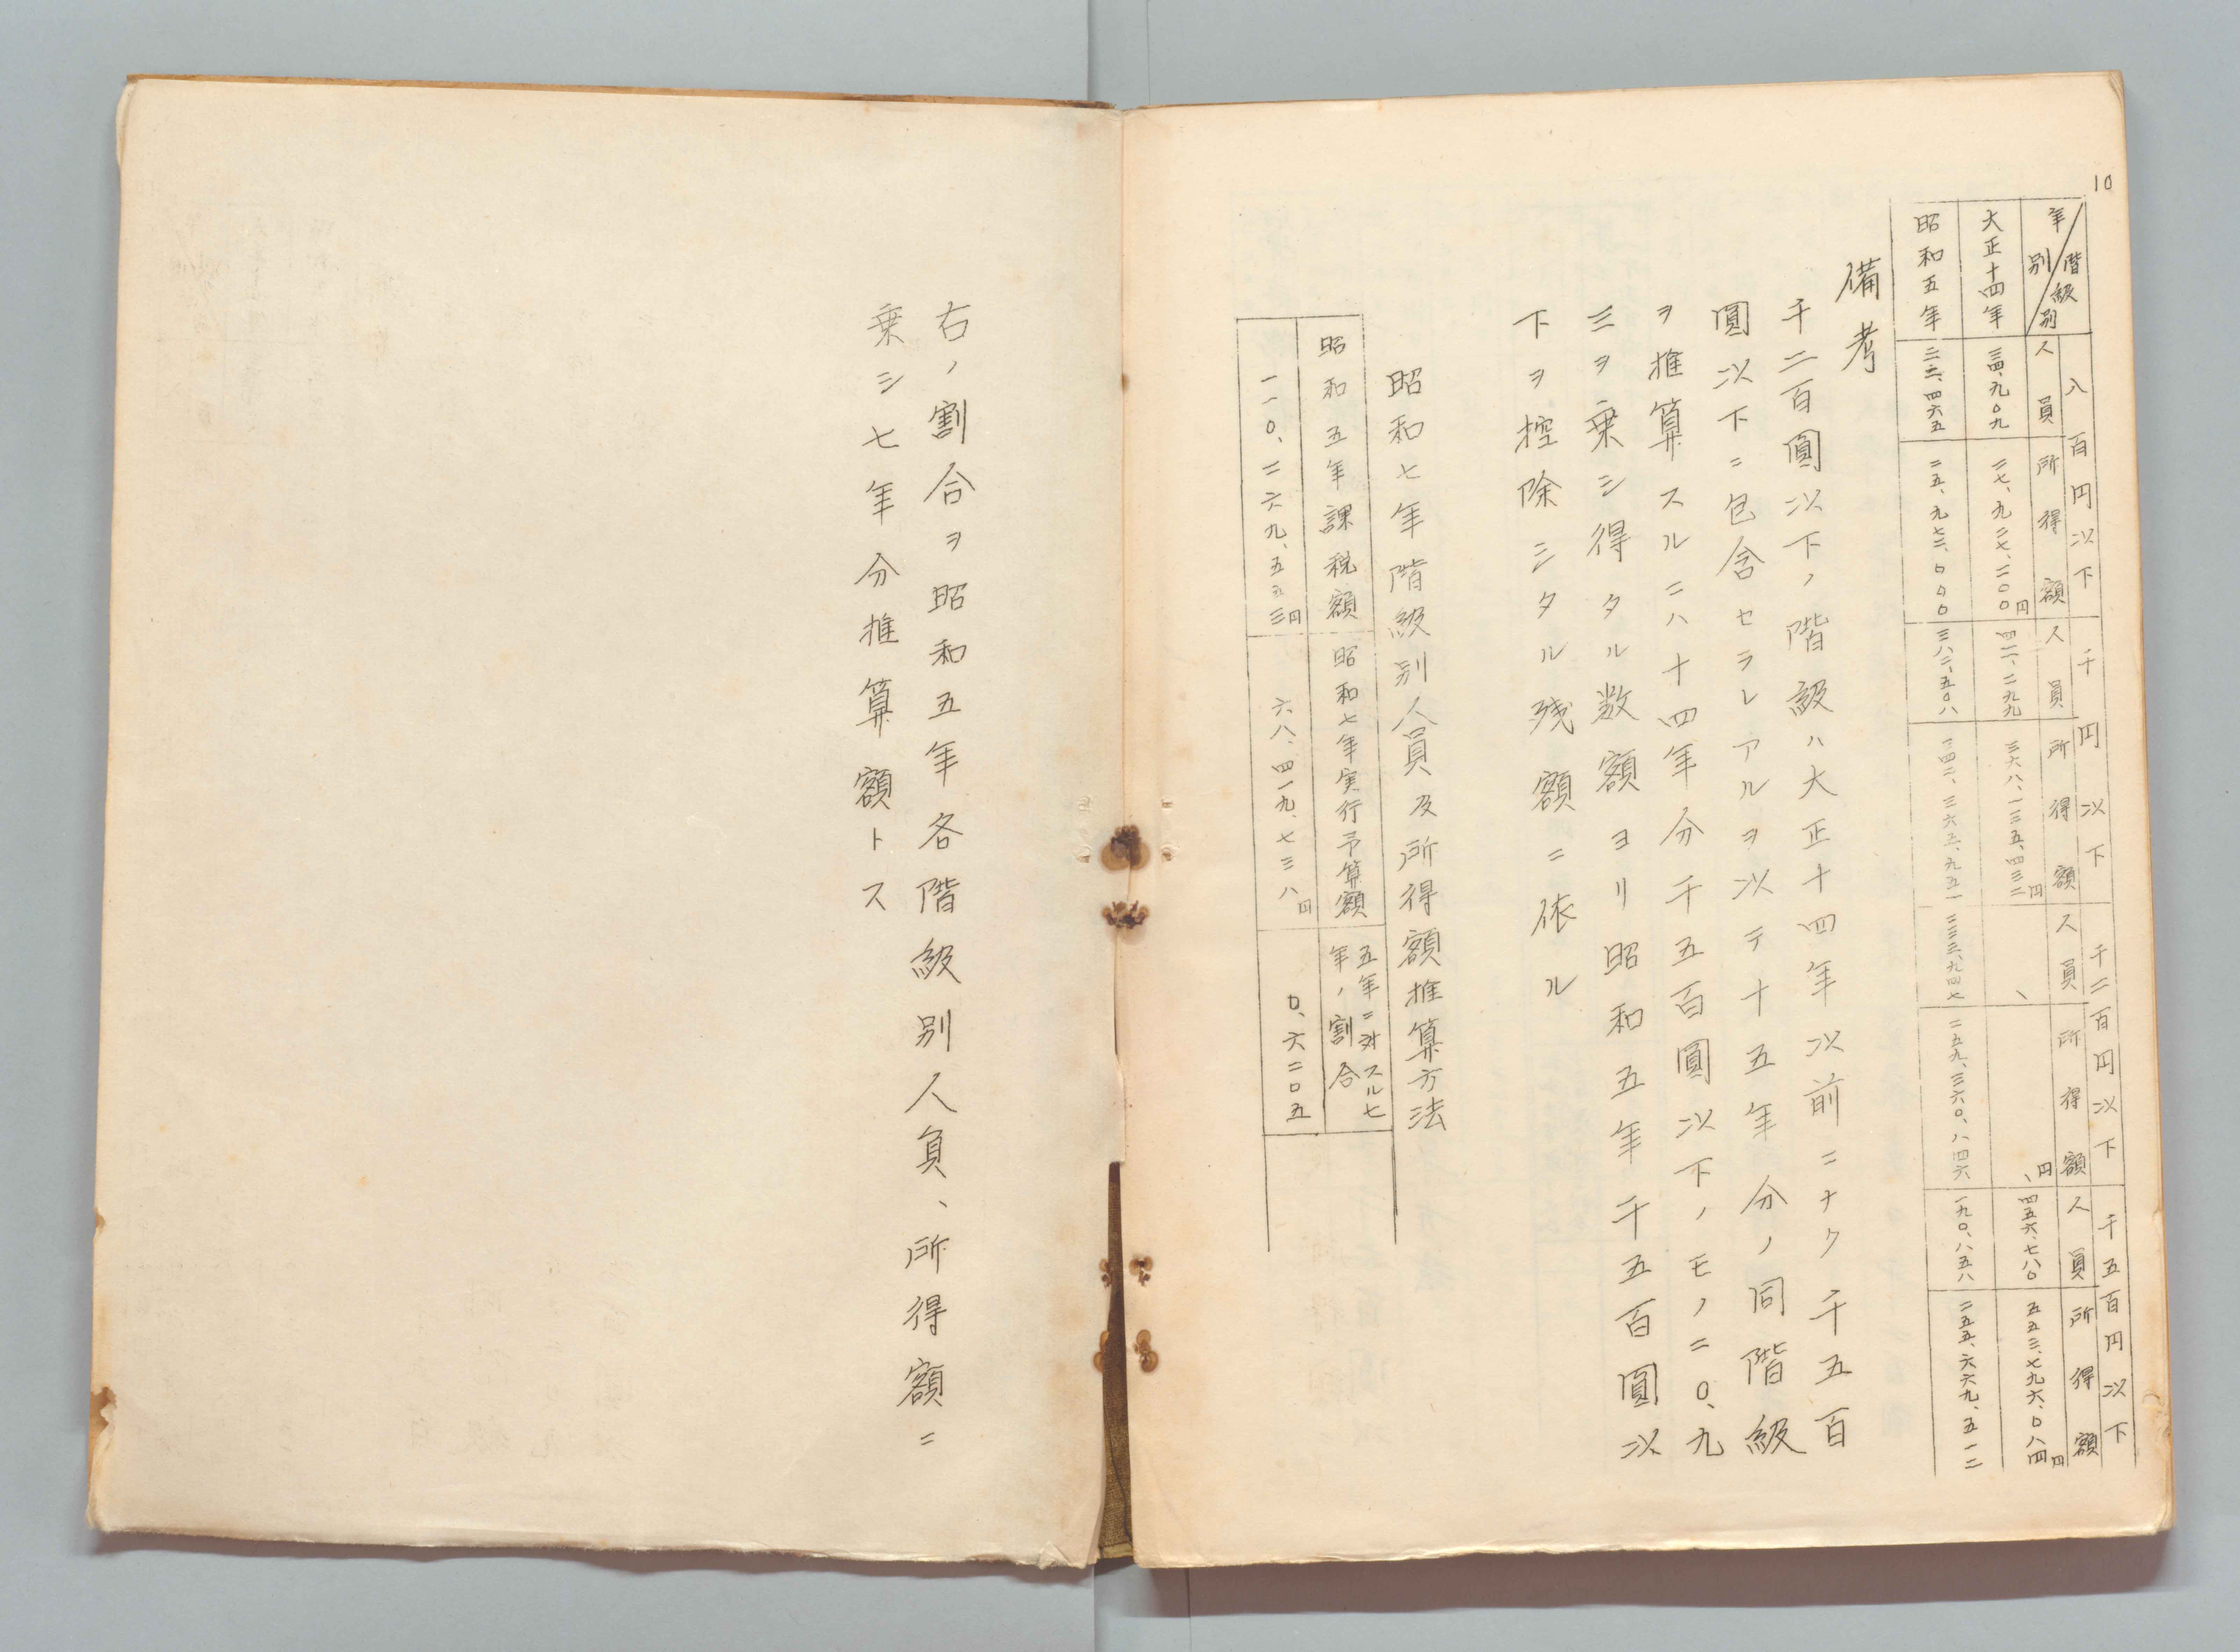 10
階級別
年別
八百円以下
千円以下
千二百円以下
千五百円以下
人員 所得額 人員 所得額 人員 所得額 人員 所得額
大正十四年 三四、九〇九 二七、九二七、二〇〇円 四一二、二九九 三六八、一三五、四三二円 、 、円 四五六、七八〇 五五三、七九六、〇八四円
昭和五年 三二、四六五 二五、九七二、〇〇〇 三八二、五〇八 三四二、三六五、九五一 二三三、九四七 二五九、三六〇、八四六 一九〇、八五八 二五五、六六九、五一二
備考
千二百圓以下ノ階級ハ大正十四年以前ニナク千五百
圓以下ニ包含セラレアルヲ以テ十五年分ノ同階級
ヲ推算スルニハ十四年分千五百圓以下ノモノニ〇、九
三ヲ乗シ得タル数額ヨリ昭和五年千五百圓以
下ヲ控除シタル残額ニ依ル
昭和七年階級別人員及所得額推算方法
昭和五年課税額 昭和七年実行予算額 五年ニ対スル七
年ノ割合
一一〇、二六九、五五三円 六八、四一九、七三八円 〇、六二〇五
右ノ割合ヲ昭和五年各階級別人員、所得額ニ
乗シ七年分推算額トス